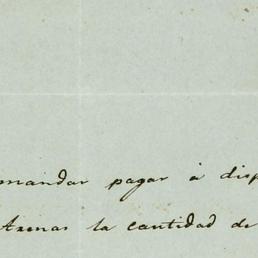 mandar pagar á disp
Arenas la cantidad de